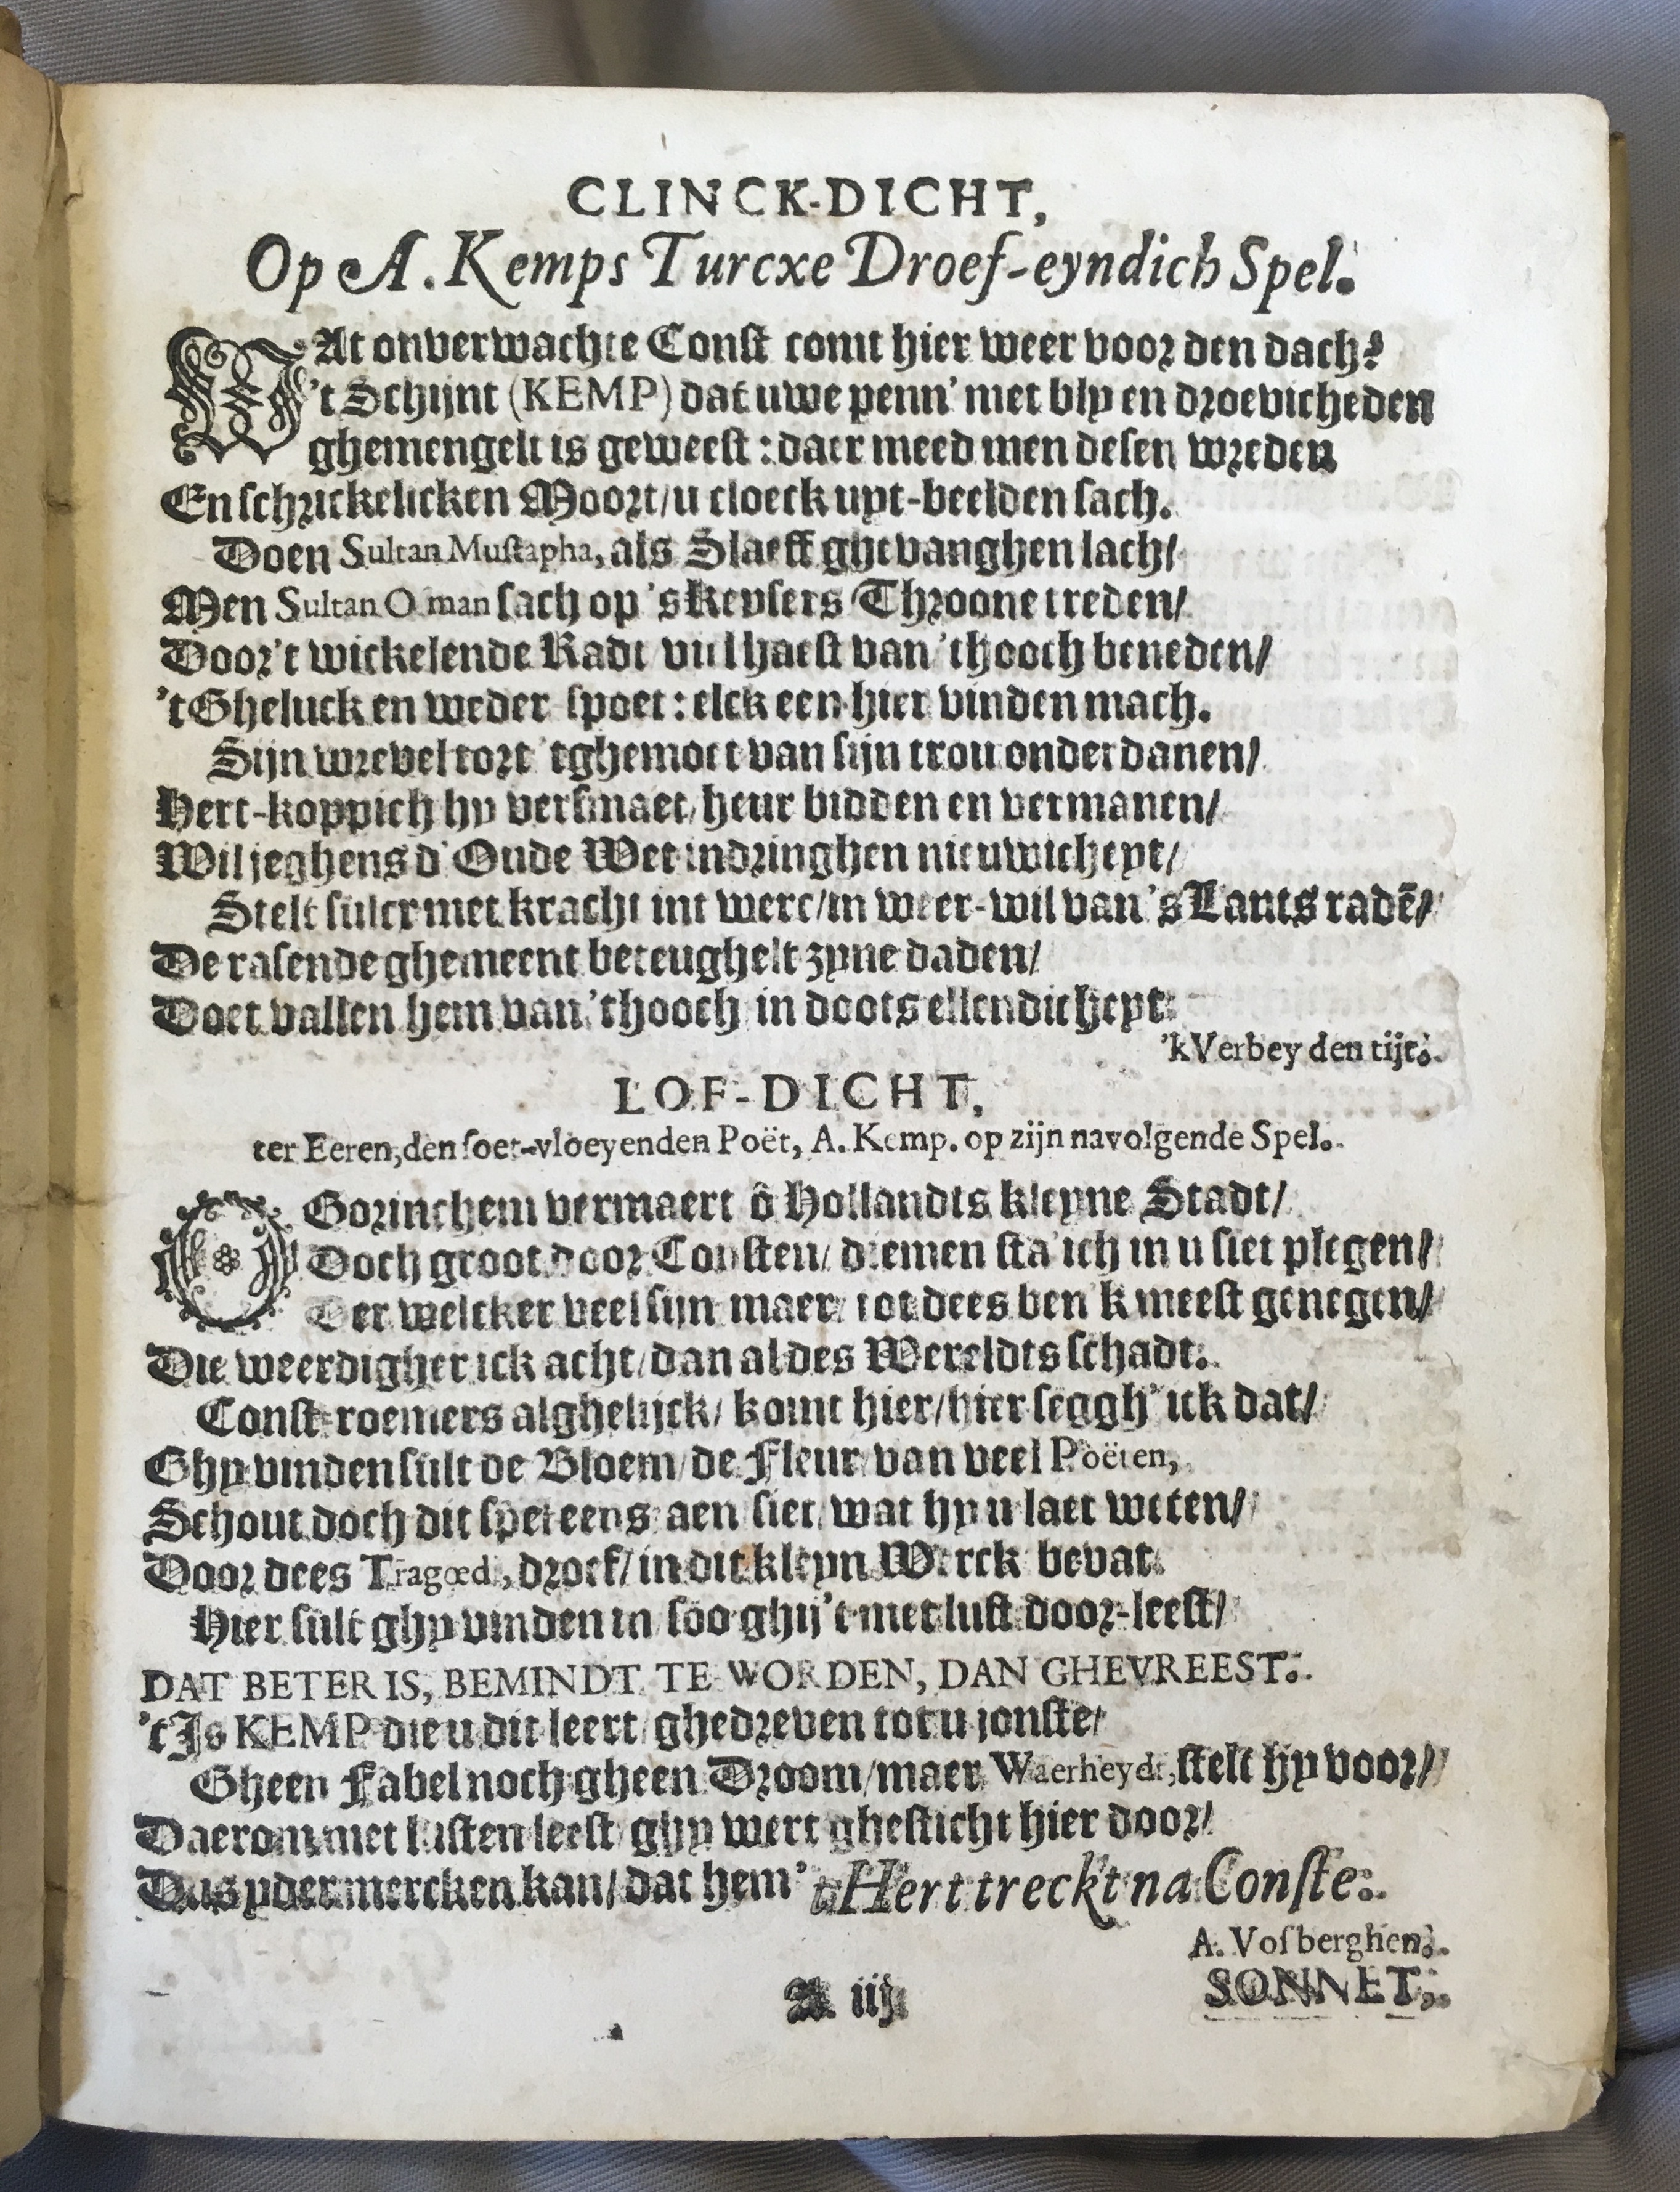 CLINCK-DICHT,
Op A. Kemps Turcxe Droef-eyndich Spel.
WAt onverwachte Const comt hier weer voor den dach?
't Schijnt (KEMP) dat uwe penn' met bly en droevicheden
ghemengelt is geweest: daer meed men desen wreden
En schrickelicken Moort/ u cloeck uyt-beelden sach.
Doen Sultan Mustapha, als Slaeff ghevanghen lach/
Men Sultan Osman sach op 's Keysers Throone treden/
Door 't wickelende Radt vvil haest van 't hooch beneden/
't Gheluck en weder spoet: elck een hier vinden mach.
Sijn wrevel tort 't ghemoet van sijn trou onderdanen/
Hert-koppich hy versmaet/ heur bidden en vermanen/
Wil jeghens d' Oude Wet indringhen nieuwicheyt/
Stelt sulcx met kracht int werc/ in weer-wil van 's Lants radē/
De rasende ghemeent beteughelt zyne daden/
Doet vallen hem van 't hooch in doots ellendicheyt.
'k Verbey den tijt.
LOF-DICHT,
ter Eeren, den soet-vloeyenden Poët, A. Kemp. op zijn navolgende Spel.
O Gorinchem vermaert ô Hollandts kleyne Stadt/
Doch groot door Consten/ diemen sta'ich in u siet plegen/
Der welcker veel sijn maer/ tot dees ben 'k meest genegen/
Die weerdigher ick acht/ dan al des Wereldts schadt.
Const-roemers alghelijck/ komt hier/ hier seggh' ick dat/
Ghy vinden sult de Bloem/ de Fleur van veel Poëten,
Schout doch dit spel eens aen siet wat hy u laet weten/
Door dees Tragœdi, droef/ in dit kleyn Werck bevat.
Hier sult ghy vinden in soo ghij 't met lust door-leest/
DAT BETER IS, BEMINDT TE WORDEN, DAN GHEVREEST.
't Is KEMP die u dit leert/ ghedreven tot u jonste/
Gheen Fabel noch gheen Droom/ maer Waerheydt, stelt hy voor/
Daerom met lusten leest ghy wert ghesticht hier door/
Dus yder mercken kan/ dat hem 't Hert treckt na Conste.
A. Vosberghen.
A iij
SONNET,